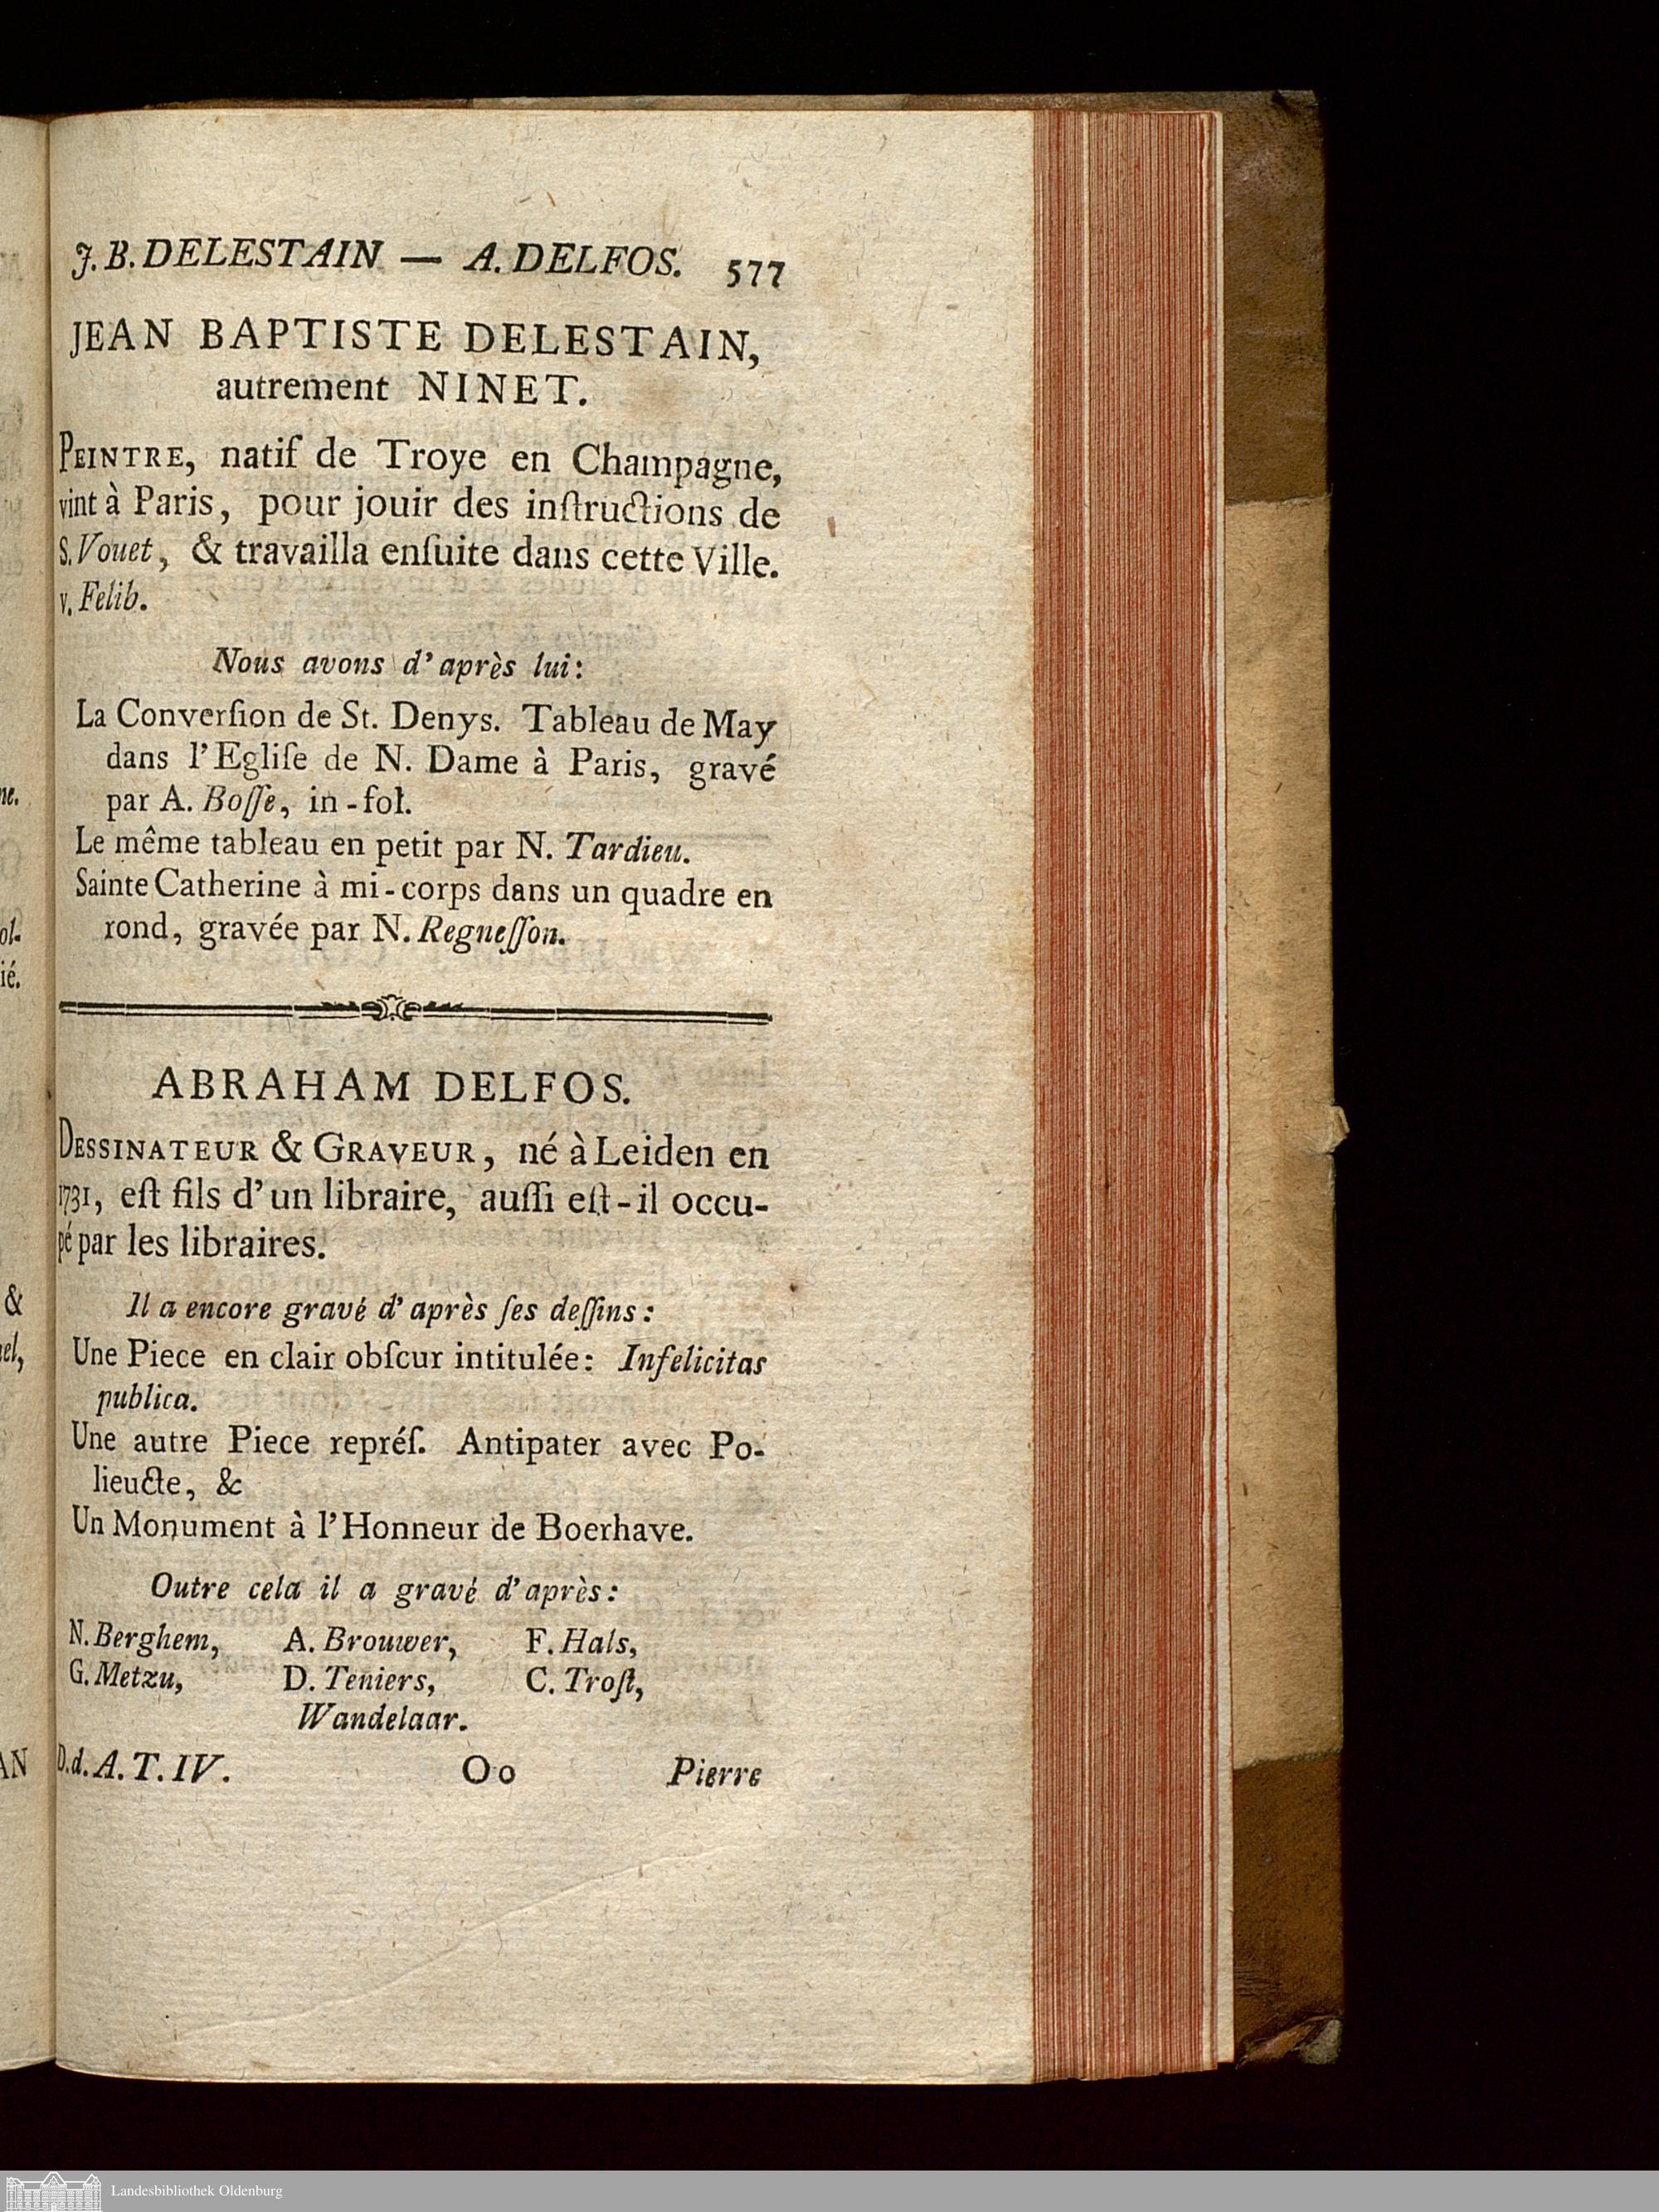 J. B. DELESTAIN — A. DELFOS. 577
JEAN BAPTISTE DELESTAIN,
autrement NINET.
PEINTRE, natif de Troye en Champagne,
vint à Paris, pour jouir des inſtructions de
S. Vouet, & travailla enſuite dans cette Ville.
v. Felib.
Nous avons d'après lui:
La Converſion de St. Denys. Tableau de May
dans l'Egliſe de N. Dame à Paris, gravé
par A. Boſſe, in-fol.
Le même tableau en petit par N. Tardieu.
Sainte Catherine à mi-corps dans un quadre en
rond, gravée par N. Regneſſon.
ABRAHAM DELFOS.
DESSINATEUR & GRAVEUR, né à Leiden en
1731, eſt fils d'un libraire, auſſi eſt-il occu-
pé par les libraires.
Il a encore gravé d'après ſes deſſins:
Une Piece en clair obſcur intitulée: Infelicitas
publica.
Une autre Piece repréſ. Antipater avec Po-
lieucte, &
Un Monument à l'Honneur de Boerhave.
Outre cela il a gravé d'après:
N. Berghem, A. Brouwer, F. Hals,
G. Metzu, D. Teniers, C. Troſt,
Wandelaar.
D. d. A. T. IV. Oo Pierre
Landesbibliothek Oldenburg